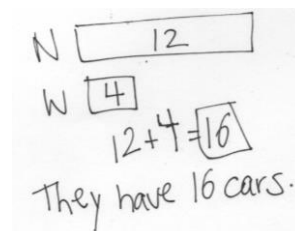 N 12
W 4
12+4=16
They have 16 cars.